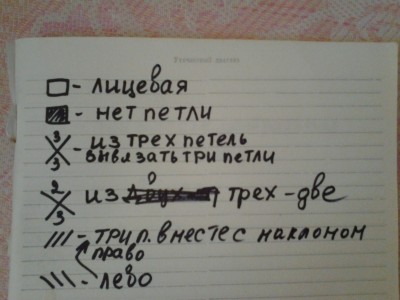 - лицевая
- нет петли
3 3 - из трех петель
вывязать три петли
2 3 из трех - две
/// - три п. вместе с наклоном
право
\\\ - лево